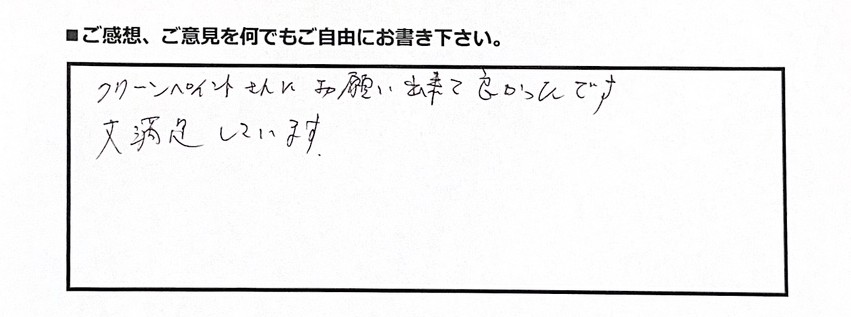 ■ご感想、ご意見を何でもご自由にお書き下さい。
クリーンペイントさんに お願い出来て良かったです
大満足しています。